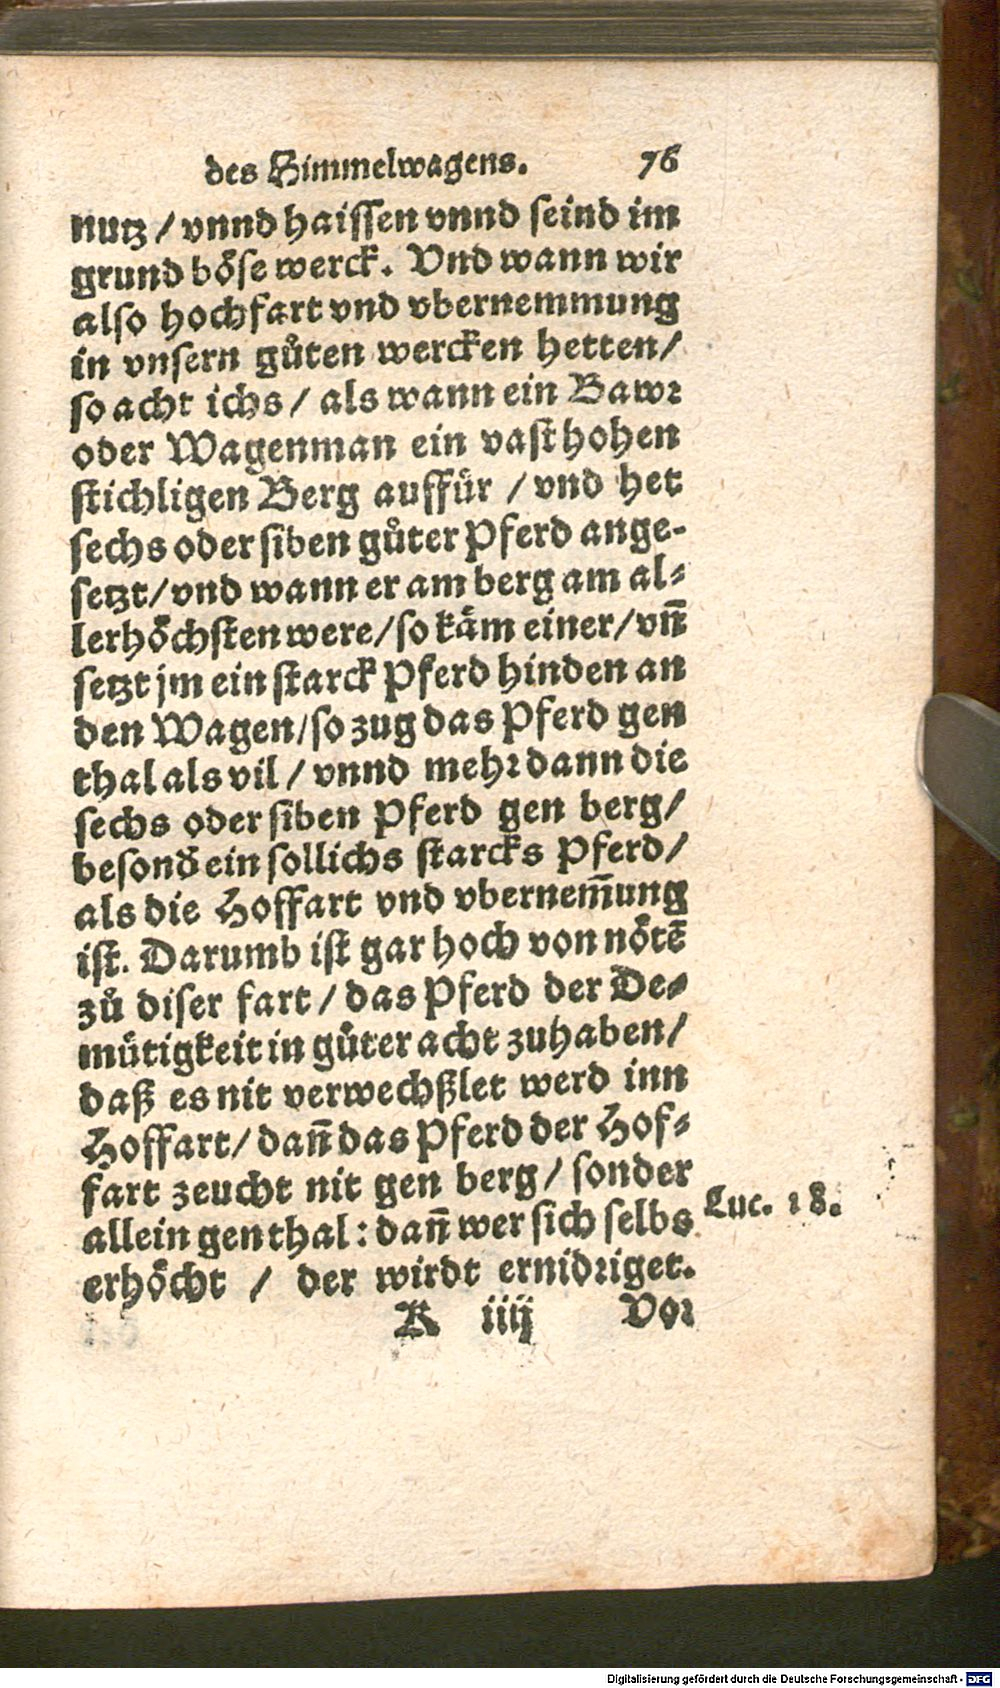 des Himmelwagens. 76
nutz / vnnd haissen vnnd seind im
grund böse werck. Vnd wann wir
also hochfart vnd vbernemmung
in vnsern gůten wercken hetten/
so acht ichs/ als wann ein Bawr
oder Wagenman ein vast hohen
stichligen Berg auffür / vnd het
sechs oder siben gůter Pferd ange-
setzt/ vnd wann er am berg am al-
lerhöchsten were/ so käm einer/ vñ
setzt jm ein starck Pferd hinden an
den Wagen/ so zug das Pferd gen
thal als vil / vnnd mehr dann die
sechs oder siben Pferd gen berg/
besond̕ ein sollichs starcks Pferd/
als die Hoffart vnd vbernem̃ung
ist. Darumb ist gar hoch von nötẽ
zů diser fart / das Pferd der De-
mütigkeit in gůter acht zuhaben/
daß es nit verwechßlet werd inn
Hoffart/ dañ das Pferd der Hof-
fart zeucht nit gen berg/ sonder
allein gen thal: dañ wer sich selbs
Luc. 18.
erhöcht / der wirdt ernidriget.
K iiij Vor
Digitalisierung gefördert durch die Deutsche Forschungsgemeinschaft - DFG